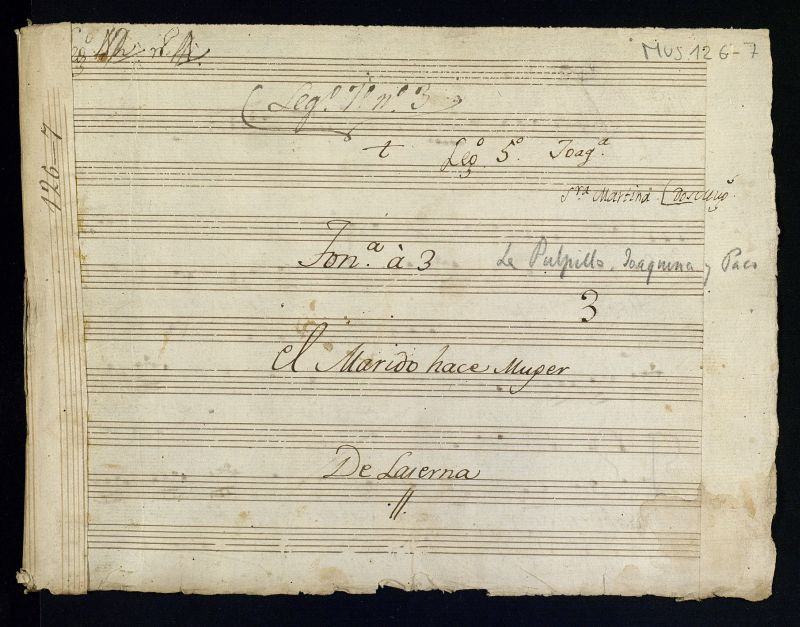 Leg.º 12 n.º 1
MUS 126-7
126-7
Leg.º 7º n.º 3
t Leg.º 5.º Joaq.ª
Sra Martina
Ton.ª à 3 La Pulpillo, Joaquina y Paco
3
el Marido hace Muger
De Laserna